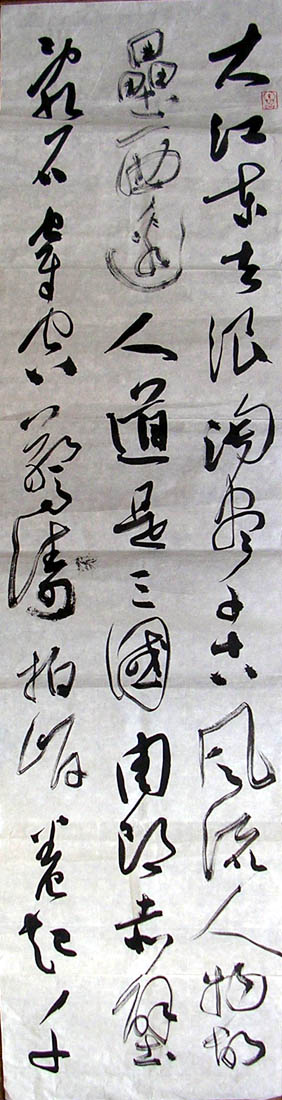 大江東去浪淘盡千古風流人物故
壘西邊人道是三國周郎赤壁
亂石穿空驚濤拍岸卷起千